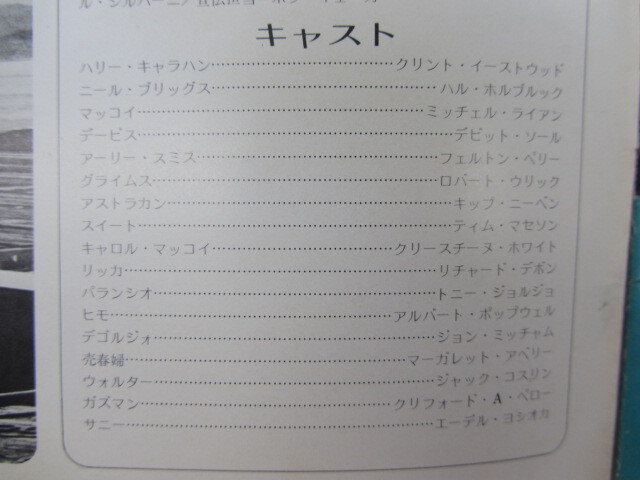 キャスト
ハリー・キャラハン……クリント・イーストウッド
ニール・ブリッグス……ハル・ホルブルック
マッコイ……ミッチェル・ライアン
デービス……デビット・ソール
アーリー・スミス……フェルトン・ペリー
グライムス……ロバート・ウリック
アストラカン……キップ・ニーベン
スイート……ティム・マセソン
キャロル・マッコイ……クリースチーヌ・ホワイト
リッカ……リチャード・デボン
パランシオ……トニー・ジョルジョ
ヒモ……アルバート・ポップウェル
デゴルジォ……ジョン・ミッチャム
売春婦……マーガレット・アベリー
ウォルター……ジャック・コスリン
ガズマン……クリフォード・A・ペロー
サニー……エーデル・ヨシオカ